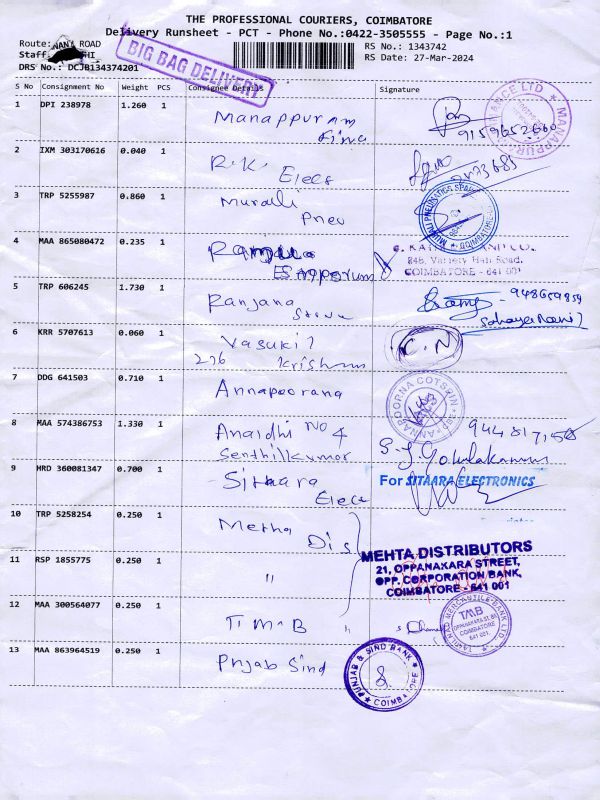 THE PROFESSIONAL COURIERS, COIMBATORE
Delivery Runsheet - PCT - Phone No.:0422-3505555 - Page No.:1
Route: ROAD
RS No.: 1343742
Staff
RS Date: 27-Mar-2024
DRS No.: DCJB134374201
BIG BAG DELIVERY
S No Consignment No Weight PCS Consignee Details Signature
1 DPI 238978 1.260 1 Manappuram
9159652660
2 IXM 303170616 0.040 1 R.K. Elecs
3 TRP 5255987 0.860 1 Muralli
Pneu
MURALI PNEUMATICS COIMBATORE
4 MAA 865080472 0.235 1
COIMBATORE - 641 001
5 TRP 606245 1.730 1 Ranjana
6 KRR 5707613 0.060 1 Vasuki
236 Krishna
7 DDG 641503 0.710 1 Annapoorana
ANNAPOORNA COTSPIN
8 MAA 574386753 1.330 1 No 4
Senthilkumar
S. J. Gokulakannan
9 HRD 360081347 0.700 1 Sitaara
Elecs
For SITAARA ELECTRONICS
10 TRP 5258254 0.250 1 Metha
Dis
MEHTA DISTRIBUTORS
21, OPPANAKARA STREET,
OPP. CORPORATION BANK,
COIMBATORE - 641 001
11 RSP 1855775 0.250 1 "
12 MAA 300564077 0.250 1 T.M.B
TAMILNAD MERCANTILE BANK LTD
TMB
COIMBATORE
641 001
13 MAA 863964519 0.250 1 Pnjab Sind
PUNJAB & SIND BANK
COIMBATORE